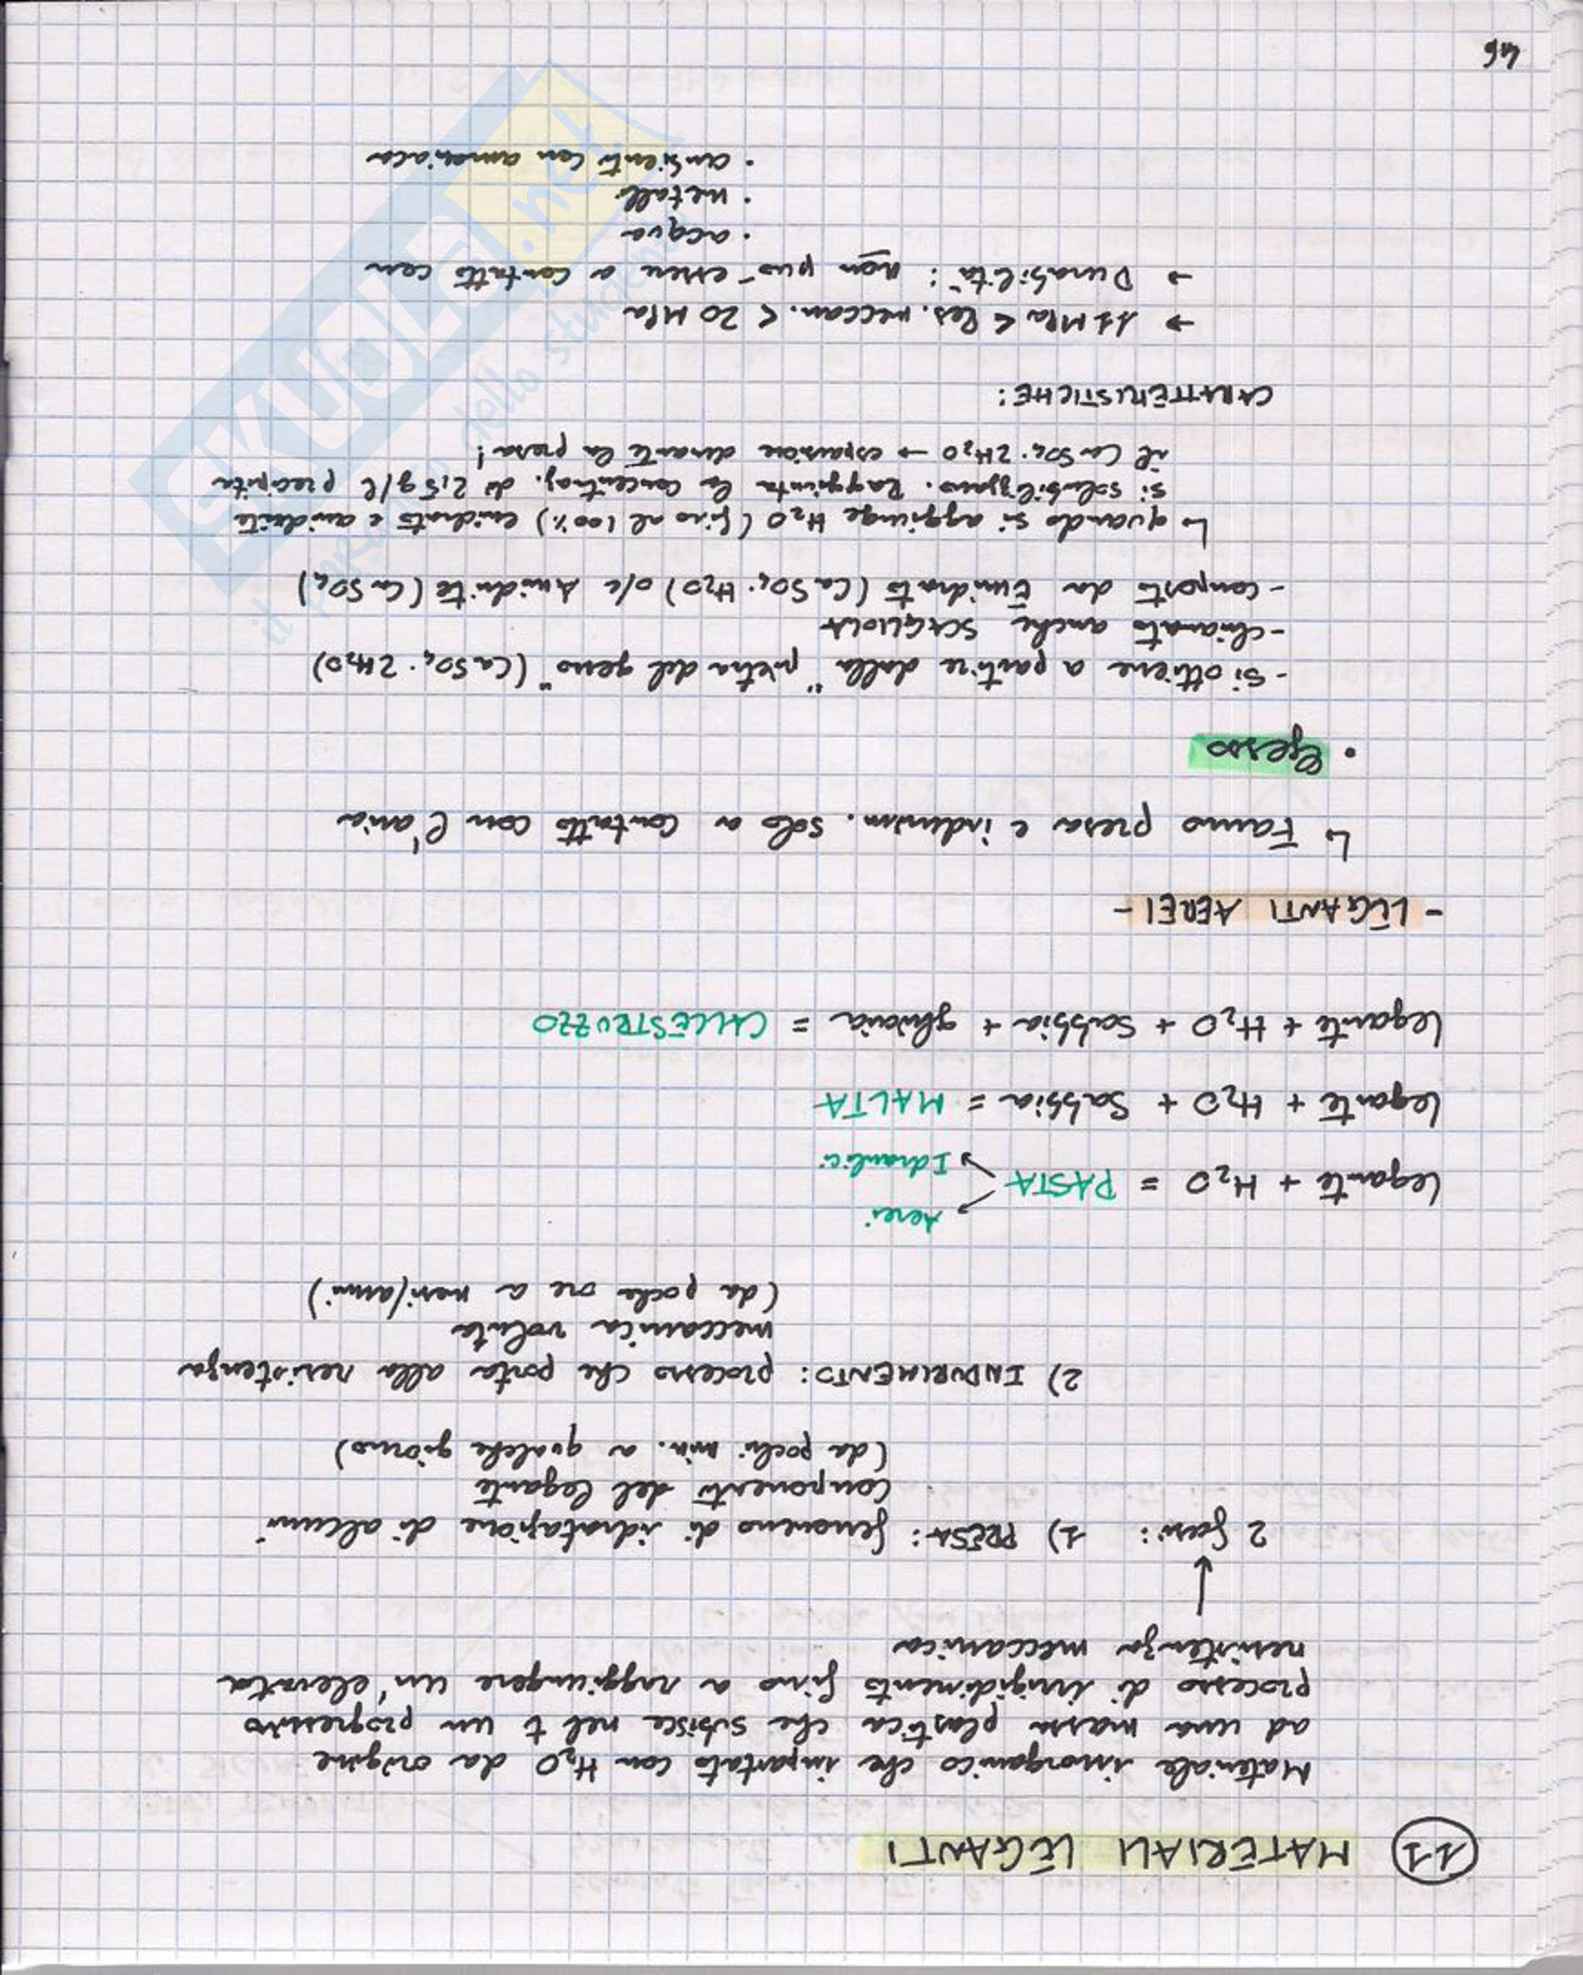 11 MATERIALI LEGANTI
Materiale inorganico che impastato con H₂O da origine
ad una massa plastica che subisce nel t un progressivo
processo di irrigidimento fino a raggiungere un'elevata
resistenza meccanica
↓
2 fasi: 1) PRESA: fenomeno di idratazione di alcuni
componenti del legante
(da pochi min. a qualche giorno)
2) INDURIMENTO: processo che porta alla resistenza
meccanica voluta
(da poche ore a mesi/anni)
Aerei
legante + H₂O = PASTA
Idraulici
legante + H₂O + Sabbia = MALTA
legante + H₂O + Sabbia + ghiaia = CALCESTRUZZO
- LEGANTI AEREI -
↳ Fanno presa e indurim. solo a contatto con l'aria
• Gesso
- Si ottiene a partire dalla "pietra del gesso" (CaSO₄·2H₂O)
- chiamato anche SCAGLIOLA
- composto da Emidrato (CaSO₄·H₂O) o/e Anidrite (CaSO₄)
↳ quando si aggiunge H₂O (fino al 100%) emidrato e anidrite
si solubilizzano. Raggiunta la concentraz. di 2,5 g/l precipita
il CaSO₄·2H₂O → espansione durante la presa!
CARATTERISTICHE:
→ 11 MPa < Res. meccan. < 20 MPa
→ Durabilità: non può essere a contatto con
• acqua
• metalli
• ambienti con ammoniaca
46
SKUOLA.net
il paradiso dello studente